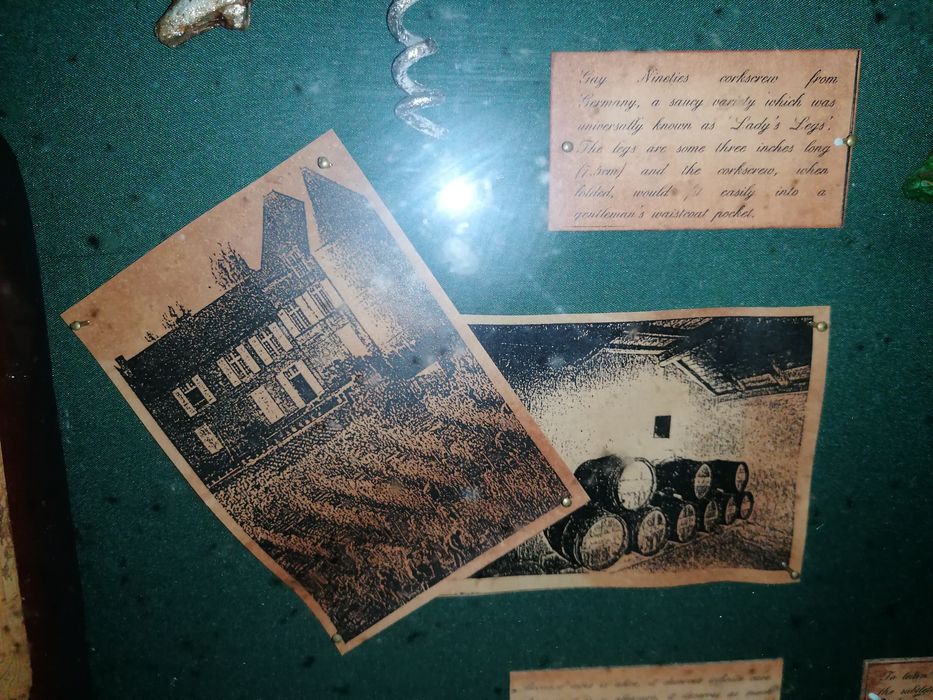 Gay Nineties corkscrew from
Germany, a saucy variety which was
universally known as 'Lady's Legs'.
The legs are some three inches long
(7.5cm) and the corkscrew, when
folded, would fit easily into a
gentleman's waistcoat pocket.